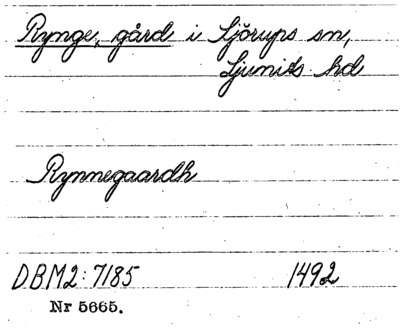 Rynge, gård i Sjörups sn,
Ljunits hd
Rynnegaardh
DBM2:7185 1492
Nr 5665.